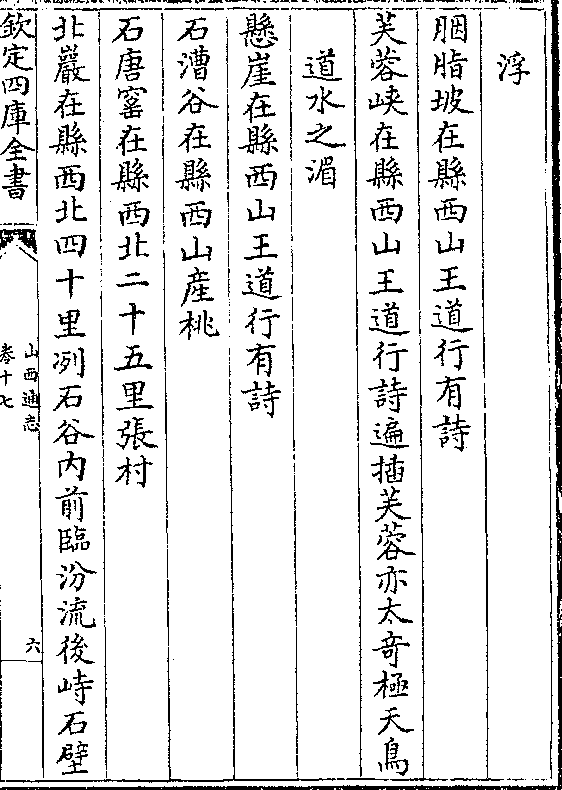 浮
胭脂坡在縣西山王道行有詩
芙蓉峽在縣西山王道行詩遍插芙蓉亦太奇極天鳥
道水之湄
懸崖在縣西山王道行有詩
石漕谷在縣西山産桃
石唐窰在縣西北二十五里張村
北巖在縣西北四十里冽石谷内前臨汾流後峙石壁
欽定四庫全書
山西通志
卷十七
六